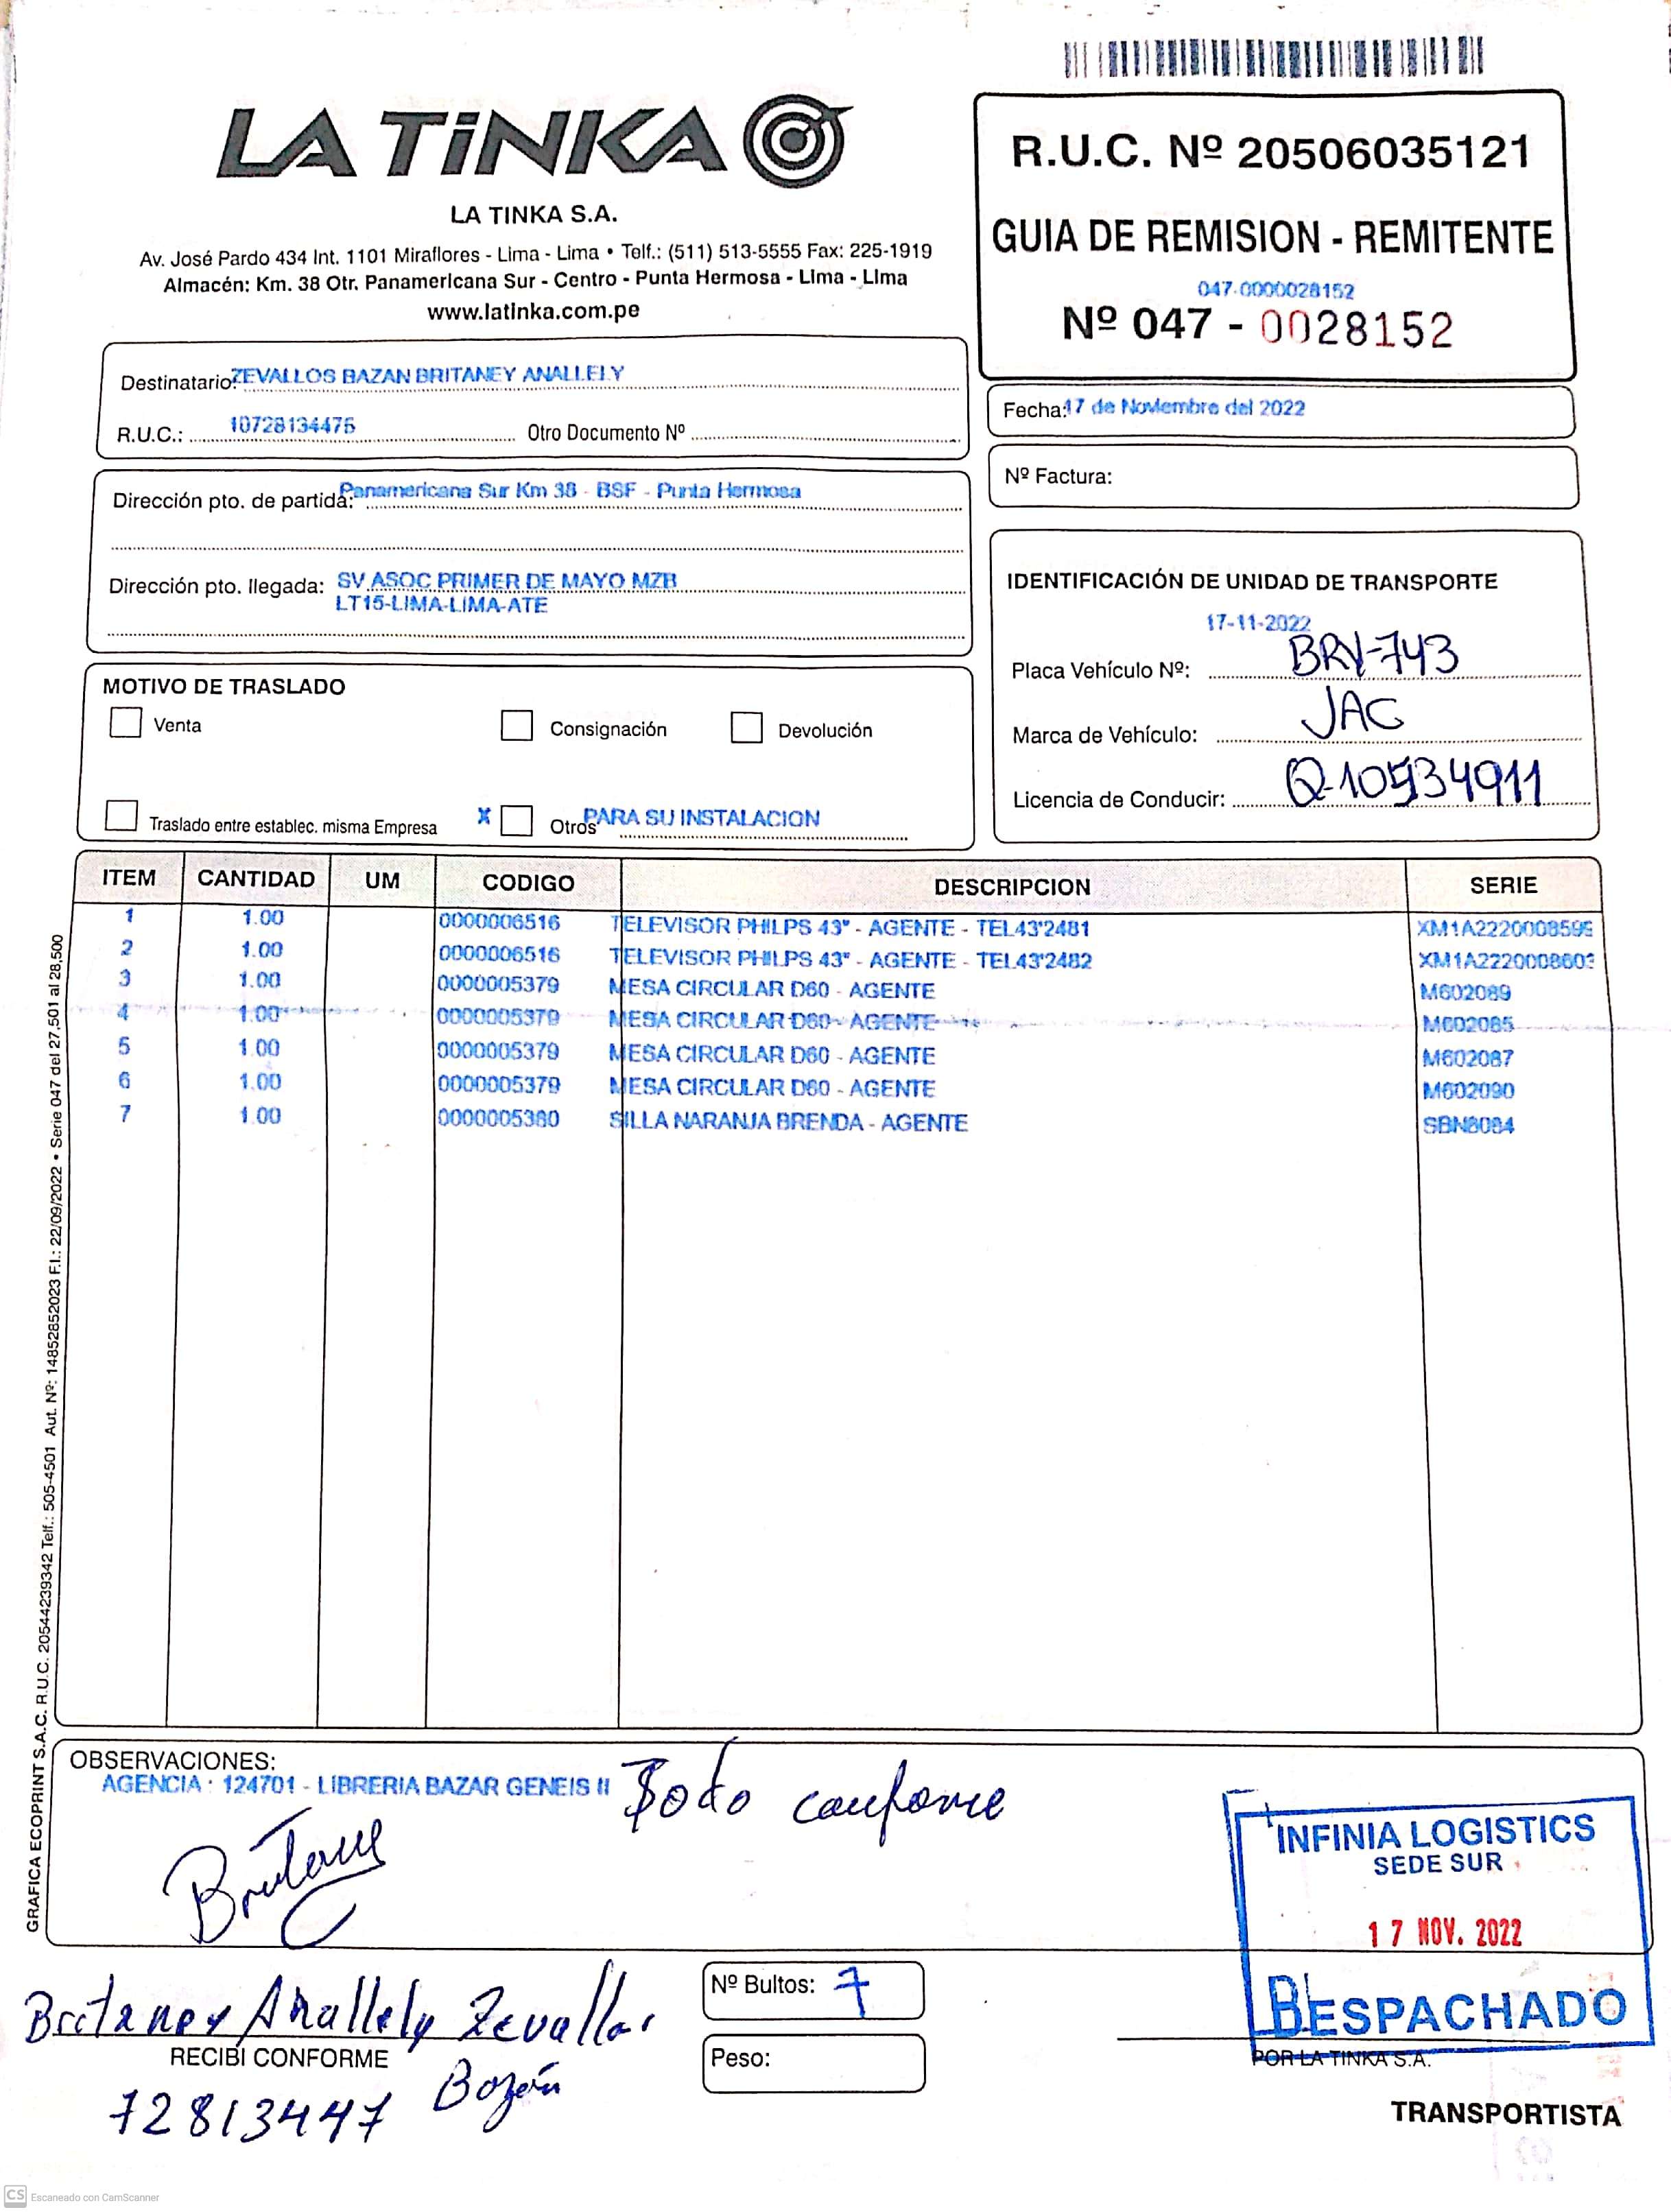 LA TiNKA
LA TINKA S.A.
Av. José Pardo 434 Int. 1101 Miraflores - Lima - Lima • Telf.: (511) 513-5555 Fax: 225-1919
Almacén: Km. 38 Otr. Panamericana Sur - Centro - Punta Hermosa - Lima - Lima
www.latinka.com.pe
R.U.C. Nº 20506035121
GUIA DE REMISION - REMITENTE
047-0000028152
Nº 047 - 0028152
Destinatario: ZEVALLOS BAZAN BRITANEY ANALLELY
R.U.C.: 10728134475 Otro Documento Nº
Fecha: 17 de Noviembre del 2022
Nº Factura:
Dirección pto. de partida: Panamericana Sur Km 38 - BSF - Punta Hermosa
Dirección pto. llegada: SV ASOC PRIMER DE MAYO MZB
LT15-LIMA-LIMA-ATE
IDENTIFICACIÓN DE UNIDAD DE TRANSPORTE
17-11-2022
Placa Vehículo Nº: BRV-743
Marca de Vehículo: JAC
Licencia de Conducir: Q-10534911
MOTIVO DE TRASLADO
Venta Consignación Devolución
Traslado entre establec. misma Empresa X Otros PARA SU INSTALACION
ITEM CANTIDAD UM CODIGO DESCRIPCION SERIE
1 1.00 0000006516 TELEVISOR PHILPS 43" - AGENTE - TEL43'2481 XM1A2220008599
2 1.00 0000006516 TELEVISOR PHILPS 43" - AGENTE - TEL43'2482 XM1A2220008603
3 1.00 0000005379 MESA CIRCULAR D60 - AGENTE M602089
4 1.00 0000005379 MESA CIRCULAR D60 - AGENTE M602085
5 1.00 0000005379 MESA CIRCULAR D60 - AGENTE M602087
6 1.00 0000005379 MESA CIRCULAR D60 - AGENTE M602090
7 1.00 0000005380 SILLA NARANJA BRENDA - AGENTE SBN8084
GRAFICA ECOPRINT S.A.C. R.U.C. 20544239342 Telf.: 505-4501 Aut. Nº: 14852852023 F.I.: 22/09/2022 • Serie 047 del 27,501 al 28,500
OBSERVACIONES:
AGENCIA : 124701 - LIBRERIA BAZAR GENEIS II
Todo conforme
INFINIA LOGISTICS
SEDE SUR
17 NOV. 2022
DESPACHADO
Britaney Anallely Zevallos
Bazán
RECIBÍ CONFORME
72813447
Nº Bultos: 7
Peso:
POR LA TINKA S.A.
TRANSPORTISTA
CS Escaneado con CamScanner